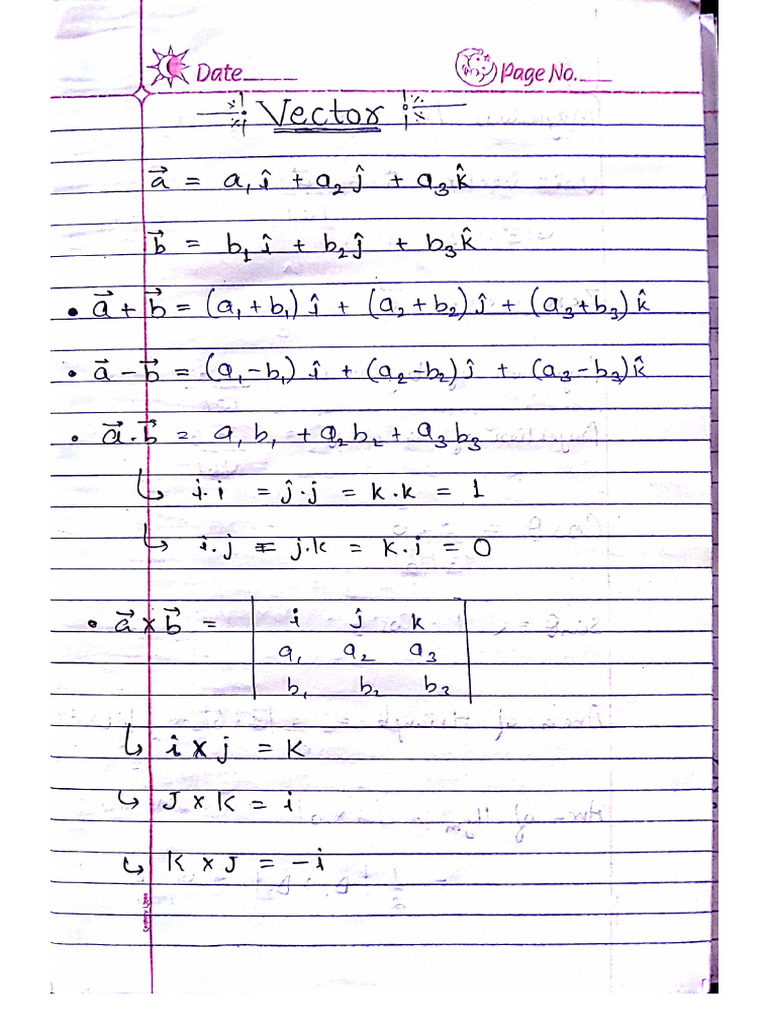 Date____ Page No.____
Vector
a⃗ = a₁î + a₂ĵ + a₃k̂
b⃗ = b₁î + b₂ĵ + b₃k̂
• a⃗ + b⃗ = (a₁ + b₁) î + (a₂ + b₂) ĵ + (a₃ + b₃) k̂
• a⃗ − b⃗ = (a₁ − b₁) î + (a₂ − b₂) ĵ + (a₃ − b₃) k̂
• a⃗ . b⃗ = a₁b₁ + a₂b₂ + a₃b₃
↳ i . i = ĵ . j = k . k = 1
↳ i . j = j . k = k . i = 0
• a⃗ × b⃗ = | i j k |
| a₁ a₂ a₃ |
| b₁ b₂ b₃ |
↳ i × j = k
↳ J × K = i
↳ K × J = −i